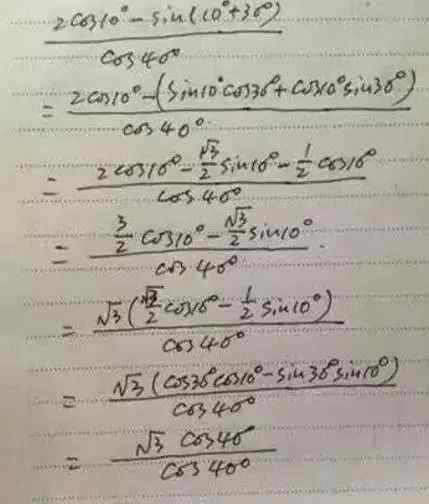 2cos10°-sin(10°+30°)
cos40°
= 2cos10°-(sin10°cos30°+cos10°sin30°)
cos40°
= 2cos10°-√3/2 sin10°-1/2 cos10°
cos40°
= 3/2 cos10°-√3/2 sin10°
cos40°
= √3(√3/2 cos10°-1/2 sin10°)
cos40°
= √3(cos30°cos10°-sin30°sin10°)
cos40°
= √3 cos40°
cos40°